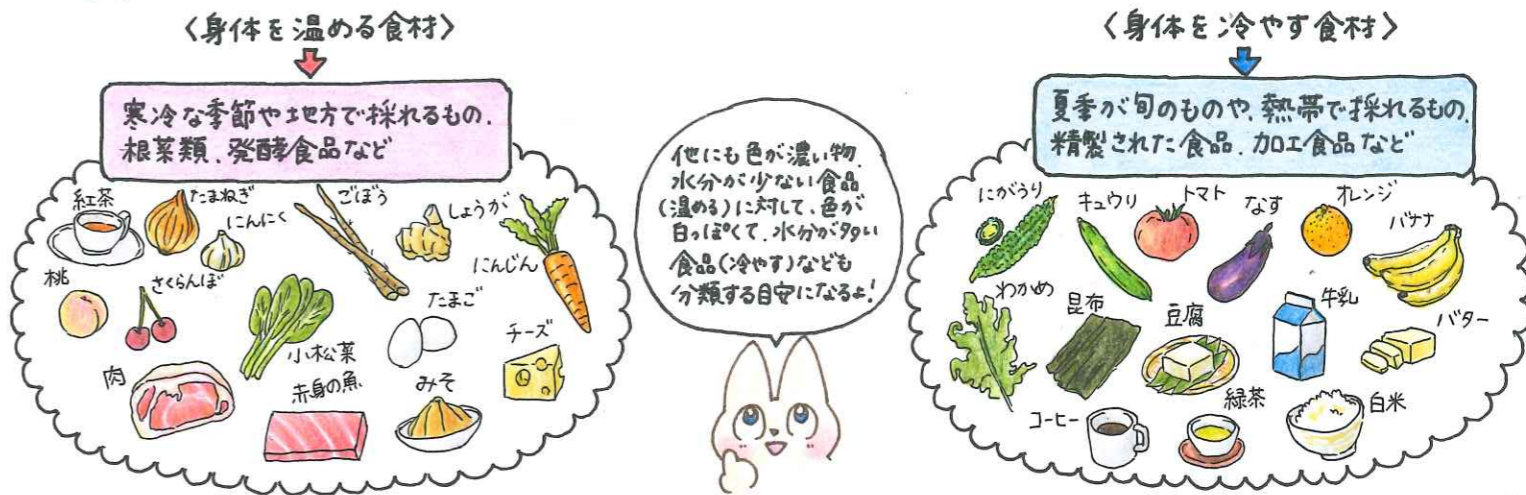 〈身体を温める食材〉
寒冷な季節や地方で採れるもの、
根菜類、発酵食品など
紅茶
たまねぎ
にんにく
ごぼう
しょうが
にんじん
桃
さくらんぼ
小松菜
たまご
チーズ
肉
赤身の魚
みそ
他にも色が濃い物、
水分が少ない食品
(温める)に対して、色が
白っぽくて、水分が多い
食品(冷やす)なども
分類する目安になるよ!
〈身体を冷やす食材〉
夏季が旬のものや、熱帯で採れるもの、
精製された食品、加工食品など
にがうり
キュウリ
トマト
なす
オレンジ
バナナ
わかめ
昆布
豆腐
牛乳
バター
コーヒー
緑茶
白米